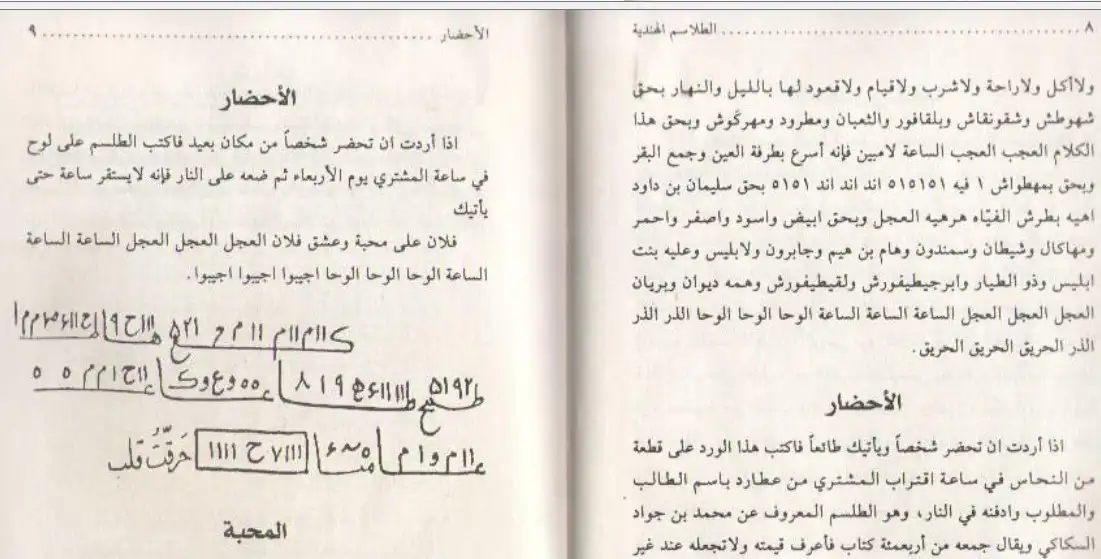 ٨ الطلاسم الهندية
ولاأكل ولاراحة ولاشرب ولاقيام ولاقعود لها بالليل والنهار بحق
شهوطش وشقونقاش وبلقافور والثعبان ومطرود ومهركوش وبحق هذا
الكلام العجب العجب الساعة لامبين فإنه أسرع بطرفة العين وجمع البقر
وبحق بمهطواش ١ فيه ٥١٥١٥١ اند اند اند ٥١٥١ بحق سليمان بن داود
اهيه بطرش الفيّاه هرهيه العجل وبحق ابيض واسود واصفر واحمر
ومهاكال وشيطان وسمندون وهام بن هيم وجابرون ولابليس وعليه بنت
ابليس وذو الطيار وابرجيطيفورش ولقيطيفورش وهمه ديوان وبريان
العجل العجل العجل الساعة الساعة الساعة الوحا الوحا الوحا الذر الذر
الذر الحريق الحريق الحريق.
الأحضار
اذا أردت ان تحضر شخصاً ويأتيك طائعاً فاكتب هذا الورد على قطعة
من النحاس في ساعة اقتراب المشتري من عطارد باسم الطالب
والمطلوب وادفنه في النار، وهو الطلسم المعروف عن محمد بن جواد
السكاكي ويقال جمعه من أربعمئة كتاب فأعرف قيمته ولاتجعله عند غير
الأحضار ٩
الأحضار
اذا أردت ان تحضر شخصاً من مكان بعيد فاكتب الطلسم على لوح
في ساعة المشتري يوم الأربعاء ثم ضعه على النار فإنه لايستقر ساعة حتى
يأتيك
فلان على محبة وعشق فلان العجل العجل العجل الساعة الساعة
الساعة الوحا الوحا الوحا اجيبوا اجيبوا اجيبوا.
حَرقّتُ قلب
المحبة